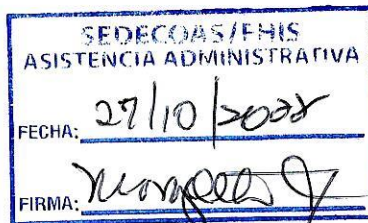 SEDECOAS/FHIS
ASISTENCIA ADMINISTRATIVA
FECHA: 27/10/2022
FIRMA: